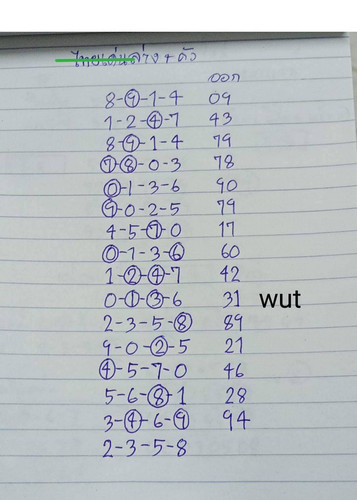 ไทยเด่นล่าง + ตัว
ออก
8-9-1-4 09
1-2-4-7 43
8-9-1-4 79
7-8-0-3 78
0-1-3-6 90
9-0-2-5 79
4-5-7-0 17
0-1-3-6 60
1-2-4-7 42
0-1-3-6 31 wut
2-3-5-8 89
9-0-2-5 21
4-5-7-0 46
5-6-8-1 28
3-4-6-9 94
2-3-5-8